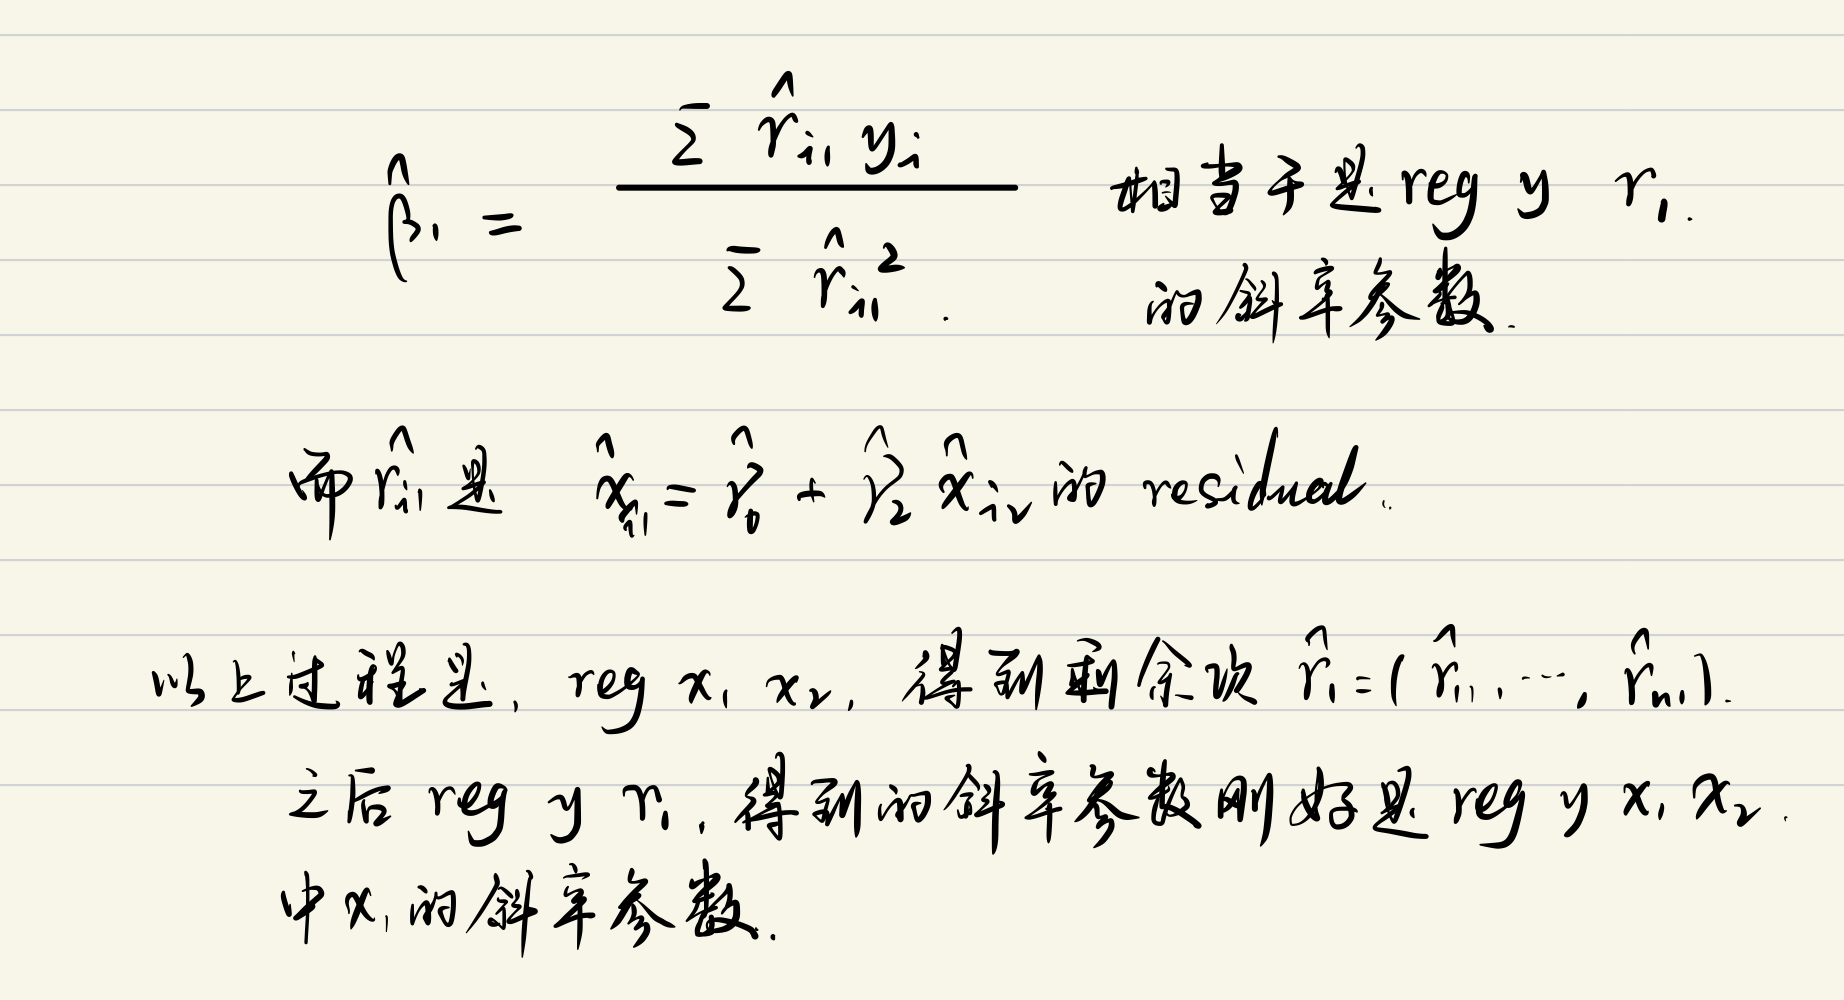 β̂₁ = Σ r̂ᵢ₁ yᵢ / Σ r̂ᵢ₁² . 相当于是 reg y r₁.
的斜率参数.
而 r̂ᵢ₁ 是 x̂ᵢ₁ = γ̂₀ + γ̂₂ x̂ᵢ₂ 的 residual.
以上过程是, reg x₁ x₂, 得到剩余项 r̂₁ = ( r̂₁₁, ⋯, r̂ₙ₁ ).
之后 reg y r₁, 得到的斜率参数刚好是 reg y x₁ x₂.
中 x₁ 的斜率参数.